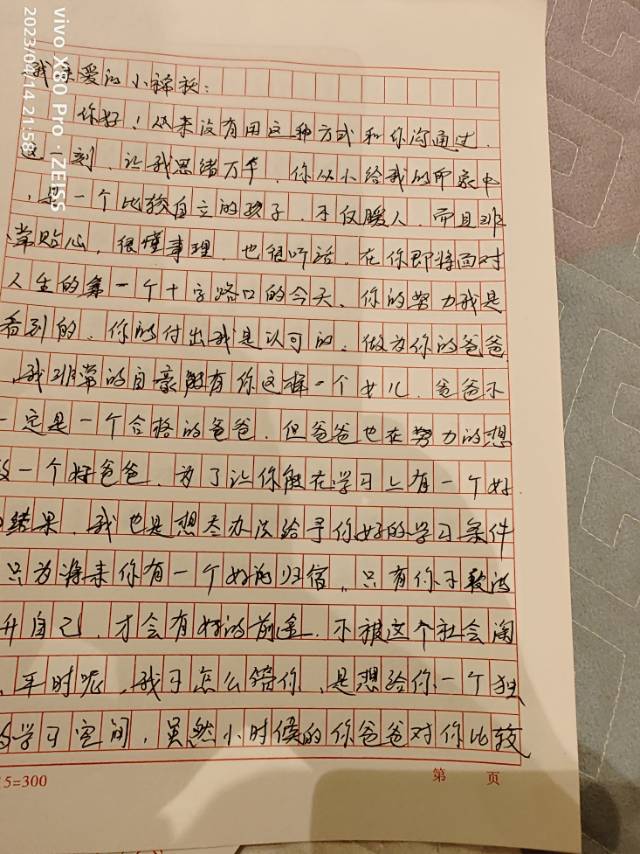 我亲爱的小
你好！从来没有用这种方式和你沟通过，
这一刻，让我思绪万千，你从小给我的印象中
，是一个比较自立的孩子，不仅暖人，而且非
常贴心，很懂事理，也很听话，在你即将面对
人生的第一个十字路口的今天，你的努力我是
看到的，你的付出我是认可的，做为你的爸爸
，我非常的自豪能有你这样一个女儿，爸爸不
一定是一个合格的爸爸，但爸爸也在努力的想
做一个好爸爸，为了让你能在学习上有一个好
的结果，我也是想尽办法给予你好的学习条件
只为将来你有一个好的归宿，只有你不
升自己，才会有好的前途，不被这个社会淘
，平时呢，我不怎么陪你，是想给你一个独
的学习空间，虽然小时候的你爸爸对你比较
15=300
第 页
vivo X80 Pro · ZEISS
2023/04/14 21:58